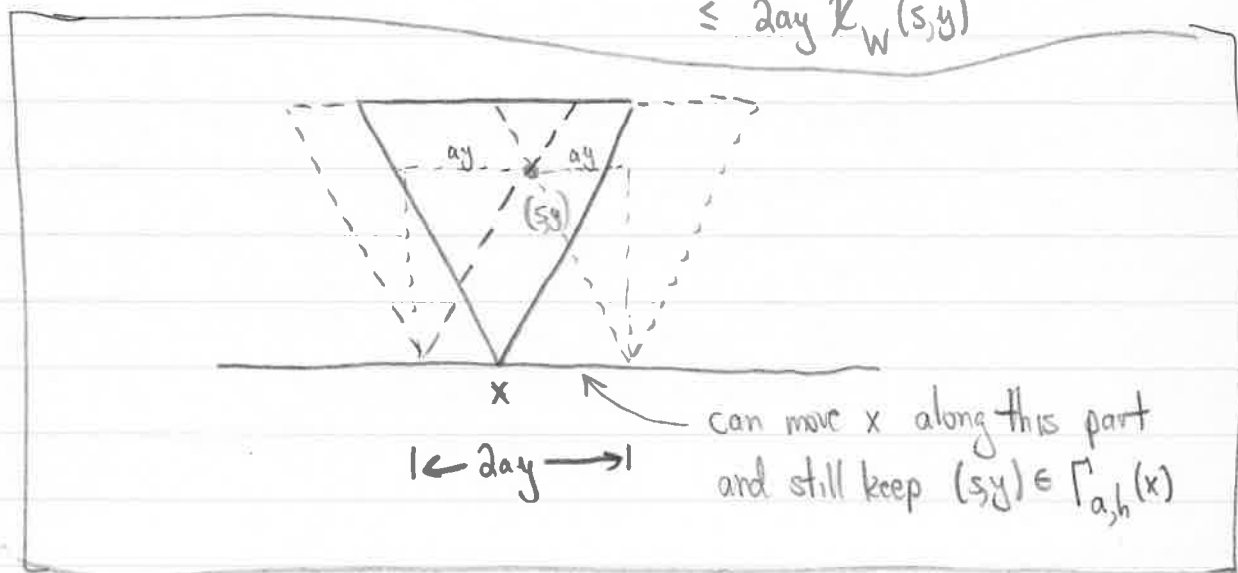 ≤ 2ay χ_W (s,y)
ay ay
(s,y)
x
can move x along this part
|← 2ay →|
and still keep (s,y) ∈ Γ_{a,h}(x)